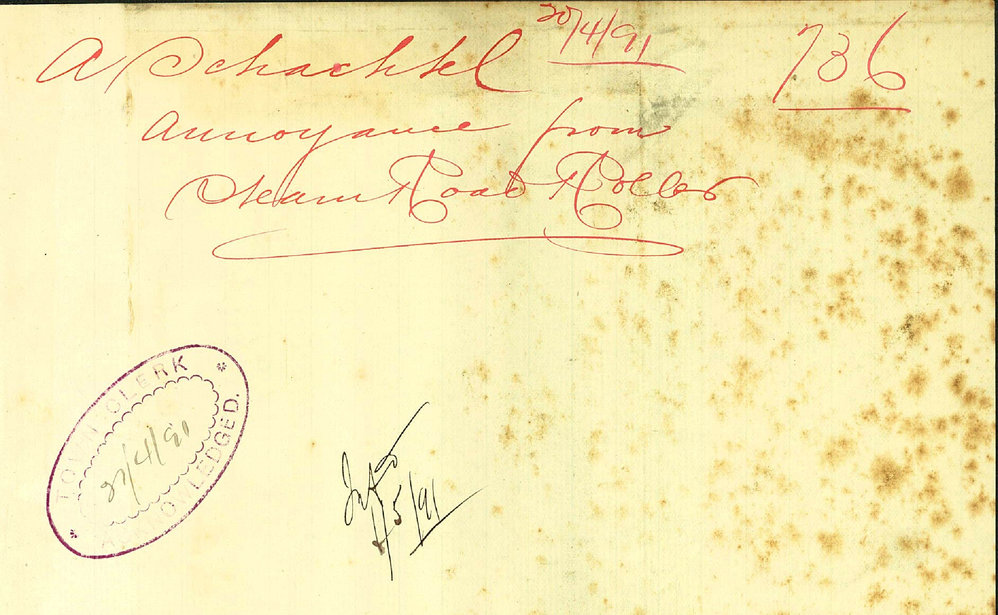 A Schachtel 20/4/91 736
Annoyance from
Steam Road Roller
TOWN CLERK
22/4/91
ACKNOWLEDGED.
5/91